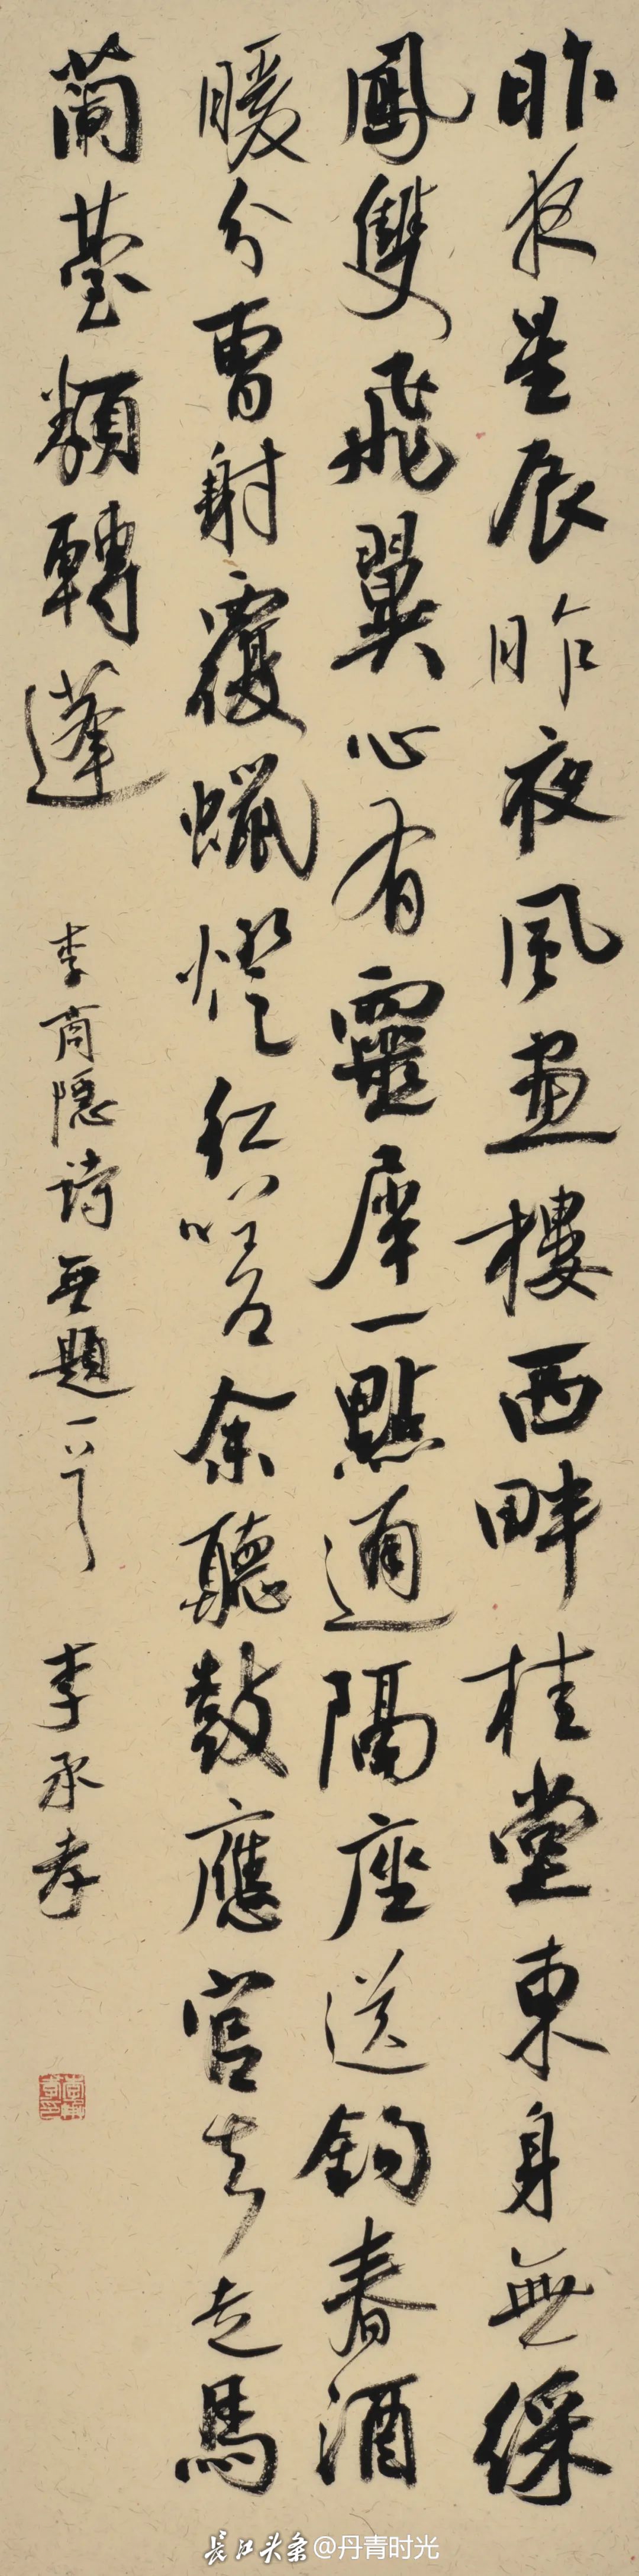 昨夜星辰昨夜風畫樓西畔桂堂東身無綵
鳳雙飛翼心有靈犀一點通隔座送鈎春酒
暖分曹射覆蠟燈紅嗟余聽鼓應官去走馬
蘭臺類轉蓬
李商隐诗無題一首
李承孝
長江头条@丹青时光